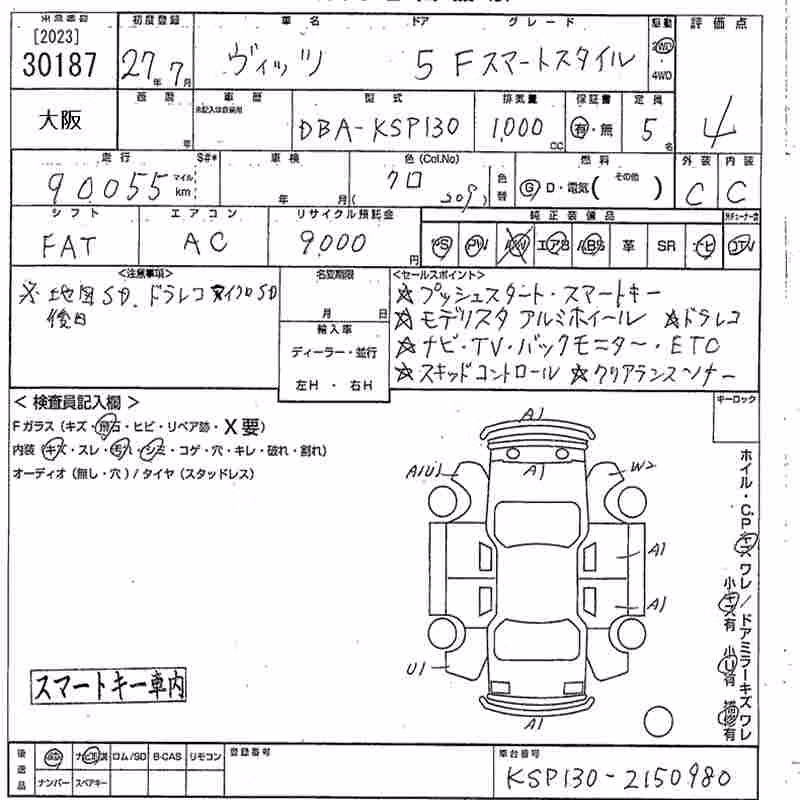 [2023]
30187
初度登録 車名 ドア グレード 駆動 評価点
27年7月 ヴィッツ 5 Fスマートスタイル 2WD
4WD
大阪
西暦 車歴 型式 排気量 保証書 定員
年 DBA-KSP130 1,000cc 有・無 5名 4
走行 S#* 車検 色(Col.No) 燃料 外装 内装
90,055 マイル km 年 月( クロ 209) 色替 G D・電気( その他 ) C C
シフト エアコン リサイクル預託金 純正装備品
FAT AC 9,000円 PS PW AW エアB ABS 革 SR ナビ
<注意事項> 名変期限 <セールスポイント>
※地図SD、ドラレコマイクロSD
後日
月 日
輸入車
ディーラー・並行
左H ・ 右H
☆プッシュスタート・スマートキー
☆モデリスタ アルミホイール ☆ドラレコ
☆ナビ・TV・バックモニター・ETC
☆スキッドコントロール ☆クリアランスソナー
<検査員記入欄> キーロック
Fガラス(キズ・飛石・ヒビ・リペア跡・X要)
内装(キズ・スレ・汚れ・シミ・コゲ・穴・キレ・破れ・割れ)
オーディオ(無し・穴)/タイヤ(スタッドレス)
A1
A1
A1U1
W2
A1
A1
U1
A1
ホイル・C.Pキズ ワレ/ドアミラーキズ ワレ
小キズ有 小U有
スマートキー車内
後送品 ナビ ロム/SD B-CAS リモコン 登録番号 車台番号
ナンバー スペアキー KSP130-2150980